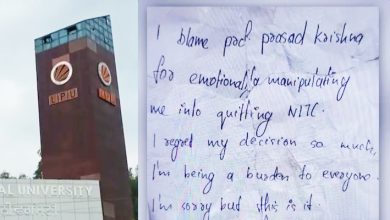 LPU
AL UNIVERSITY
I blame prof. prasad Krishna
for emotionally manipulating
me into quitting NITC.
I regret my decision so much,
I'm being a burden to everyone.
I'm sorry but this is it.